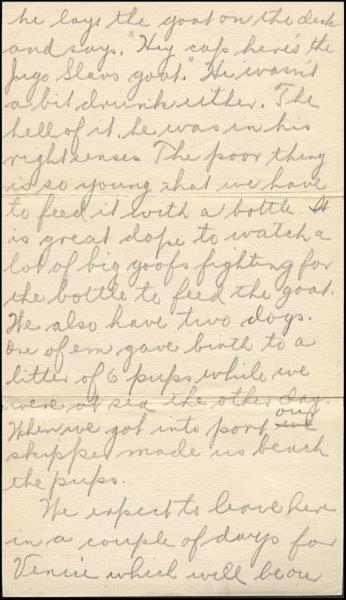 he lays the goat on the deck
and says. "Hey cap here's the
Jugo Slavs goat." He wasn't
a bit drunk either. The
hell of it. he was in his
right senses. The poor thing
is so young that we have
to feed it with a bottle. It
is great dope to watch a
lot of big goofs fighting for
the bottle to feed the goat.
We also have two dogs.
One of em gave birth to a
litter of 6 pups while we
were at sea the other day.
When we got into port our
skipper made us beach
the pups.
We expect to leave here
in a couple of days for
Venice which will be our